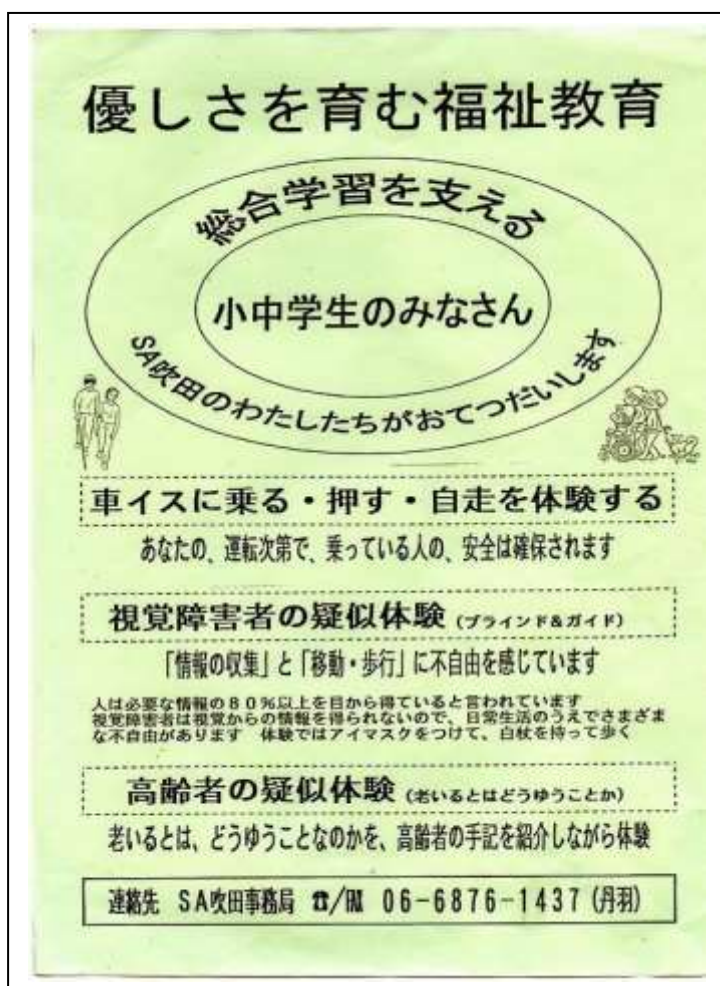 優しさを育む福祉教育
総合学習を支える
小中学生のみなさん
SA吹田のわたしたちがおてつだいします
車イスに乗る・押す・自走を体験する
あなたの、運転次第で、乗っている人の、安全は確保されます
視覚障害者の疑似体験(ブラインド&ガイド)
「情報の収集」と「移動・歩行」に不自由を感じています
人は必要な情報の80%以上を目から得ていると言われています
視覚障害者は視覚からの情報を得られないので、日常生活のうえでさまざま
な不自由があります 体験ではアイマスクをつけて、白杖を持って歩く
高齢者の疑似体験(老いるとはどうゆうことか)
老いるとは、どうゆうことなのかを、高齢者の手記を紹介しながら体験
連絡先 SA吹田事務局 ☎/℻ 06-6876-1437(丹羽)